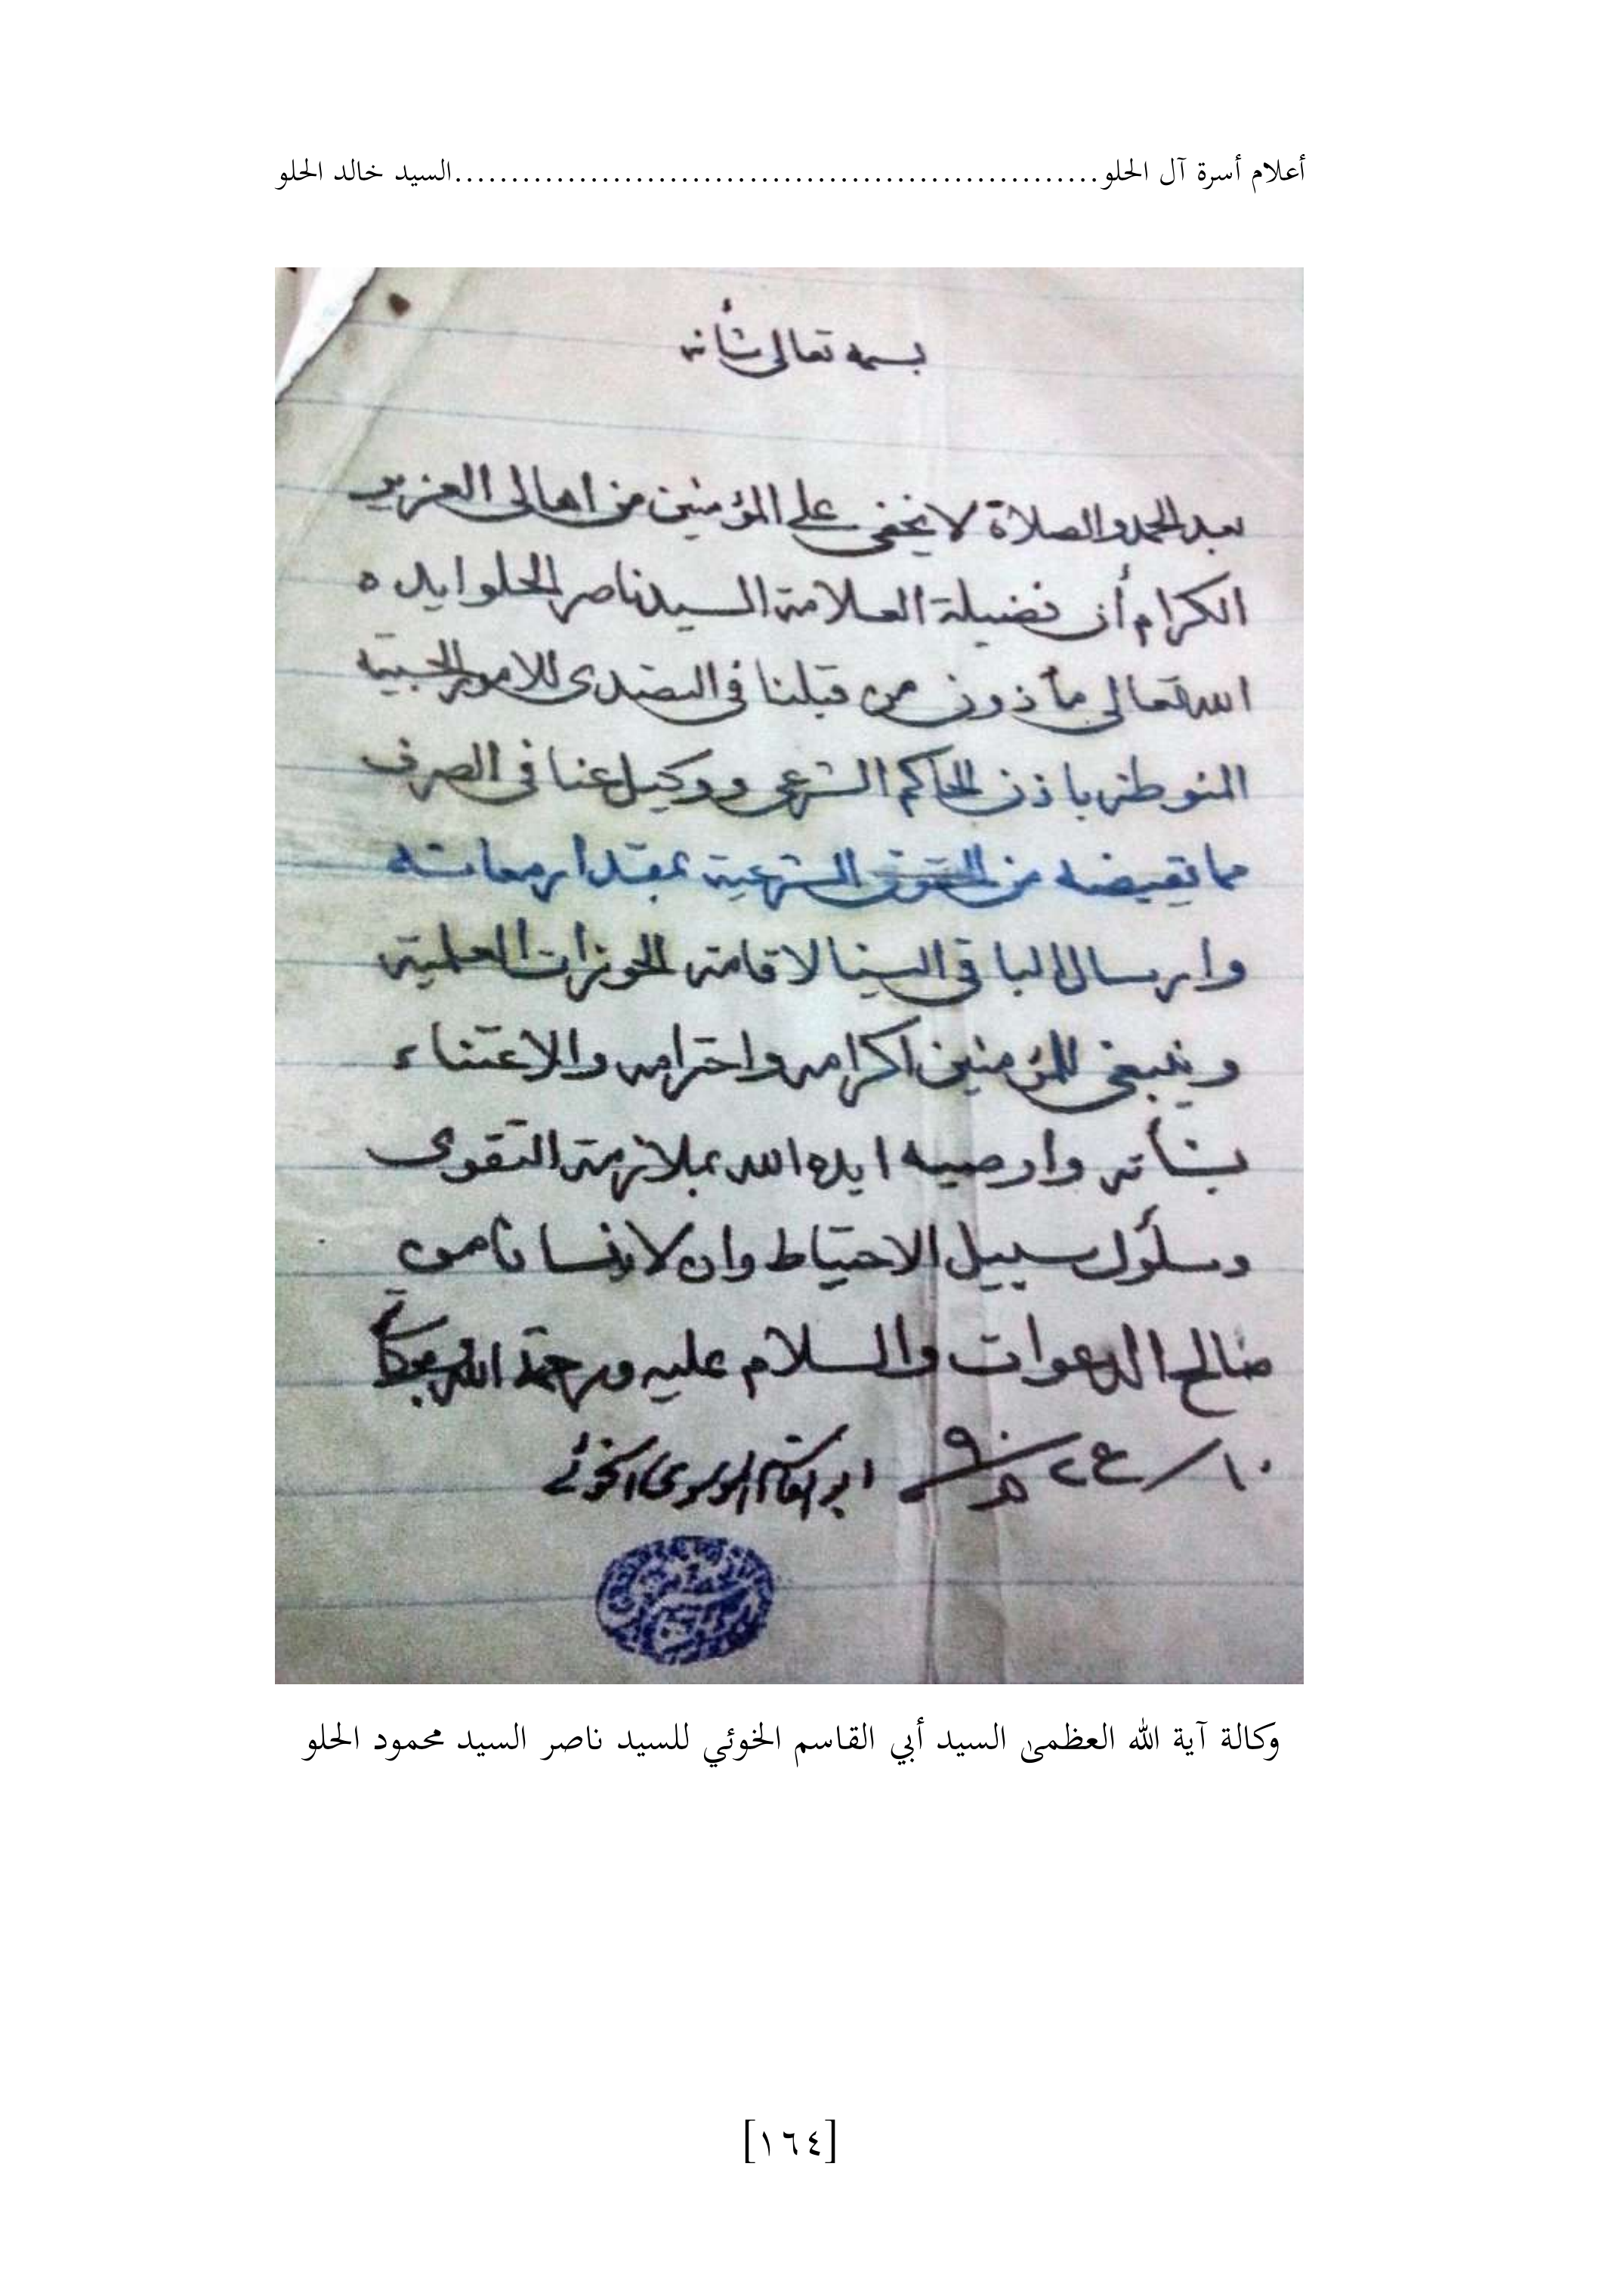 أعلام أسرة آل الحلو..........................................................السيد خالد الحلو
بسمه تعالى شأنه
بعد الحمد والصلاة لا يخفى على المؤمنين من اهالى العزير
الكرام أن فضيلة العلامة السيد ناصر الحلو ايده
الله تعالى مأذون من قبلنا فى التصدى للامور الحسبية
المنوطة باذن الحاكم الشرعى ووكيل عنا فى الصرف
مما يقبضه من الحقوق الشرعية بمقدار معاشه
وارسال الباقى الينا لاقامة الحوزات العلمية
وينبغى للمؤمنين اكرامه واحترامه والاعتناء
بشأنه واوصيه ايده الله بملازمة التقوى
وسلوك سبيل الاحتياط وان لا ينسانا من
صالح الدعوات والسلام عليه ورحمة الله وبركاته
ابو القاسم الموسوى الخوئي
وكالة آية الله العظمىٰ السيد أبي القاسم الخوئي للسيد ناصر السيد محمود الحلو
[١٦٤]